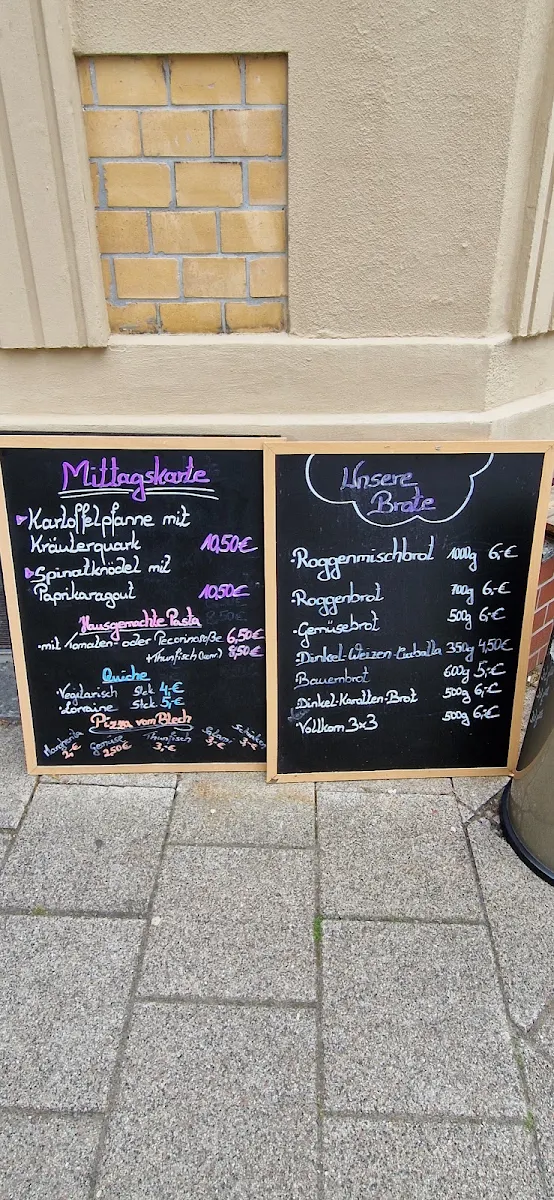 Mittagskarte
Kartoffelpfanne mit
Kräuterquark 10,50€
Spinatknödel mit
Paprikaragout 10,50€
Hausgemachte Pasta
• mit Tomaten- oder Pecorinosoße 6,50€
+ Thunfisch 8,50€
Quiche
• Vegetarisch Stck 4,-€
• Lorraine Stck 5,-€
Pizza vom Blech
Margherita Gemüse Thunfisch Salami Schinken
2,-€ 2,50€ 3,-€ 3,-€ 3,-€
Unsere
Brote
• Roggenmischbrot 1000g 6,-€
• Roggenbrot 700g 6,-€
• Gemüsebrot 500g 6,-€
• Dinkel-Weizen-Ciabatta 350g 4,50€
Bauernbrot 600g 5,-€
• Dinkel-Karotten-Brot 500g 6,-€
Vollkorn 3x3 500g 6,-€